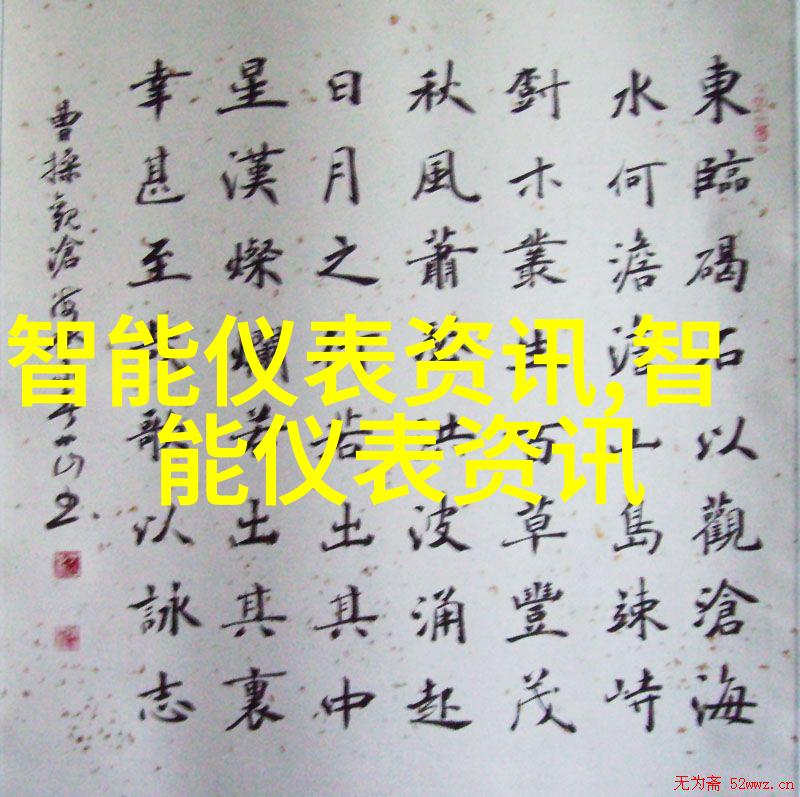 東臨碣石以觀滄海
水何澹澹山島竦峙
木叢生百草豐茂
秋風蕭瑟洪波涌起
日月之行若出其中
星漢燦爛若出其裏
幸甚至哉歌以詠志
曹操觀滄海
智能仪表资讯,智
能仪表资讯
无为斋 52wwz.cn